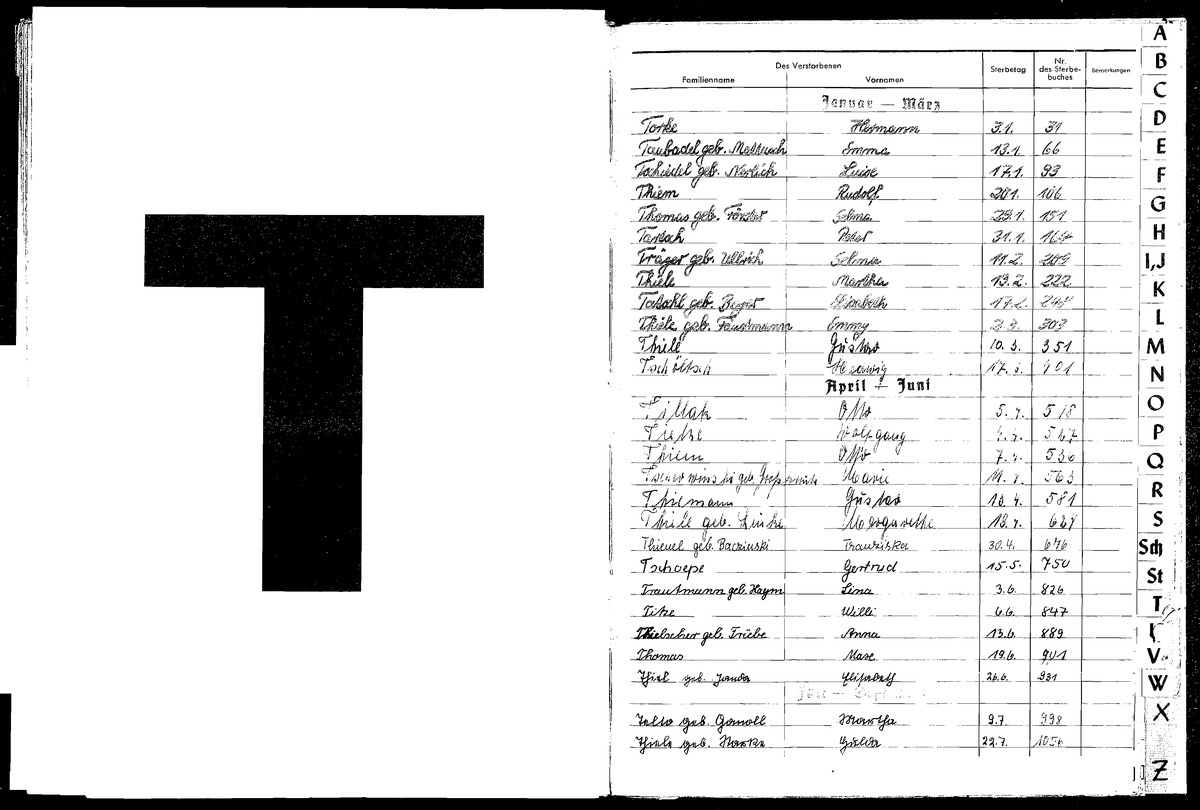 T
Des Verstorbenen
Familienname Vornamen Sterbetag Nr. des Sterbe-buches Bemerkungen
Januar — März
Torke Hermann 3.1. 31
Taubadel geb. Emma 13.1. 66
Tschiedel geb. Nerlich Luise 17.1. 93
Thiem Rudolf 20.1. 106
Thomas geb. Förster Selma 29.1. 151
Peter 31.1. 164
Träger geb. Ullrich Selma 11.2. 209
Thiele Martha 13.2. 222
geb. Elisabeth 17.2.
Thiele geb. Faustmann Emmy 2.3. 303
Thiele Gustav 10.3. 351
Tschöltsch Hedwig 17.3. 401
April — Juni
Tillak Otto 5.4. 518
Tietze Wolfgang 527
Thiem Otto 7.4. 536
geb. Marie 11.4. 563
Thiemann Gustav 13.4. 581
Thiele geb. Linke Margarethe 18.4.
Thienel geb. Baczinski Franziska 30.4. 676
Tschoepe Gertrud 15.5. 750
Trautmann geb. Haym Lina 3.6. 826
Titze Willi 6.6. 847
Thielscher geb. Triebe Anna 13.6. 889
Thomas Max 19.6. 901
Thiel geb. Janda Elisabeth 26.6. 931
geb. Martha 9.7. 998
Thiele geb. Hulda 22.7. 1056
A
B
C
D
E
F
G
H
I,J
K
L
M
N
O
P
Q
R
S
Sch
St
T
V
W
X
Z